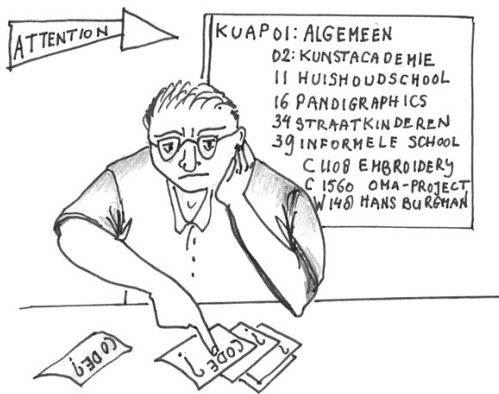 ATTENTION
KUAP01: ALGEMEEN
02: KUNSTACADEMIE
11 HUISHOUDSCHOOL
16 PANDIGRAPHICS
34 STRAATKINDEREN
39 INFORMELE SCHOOL
C 1108 EMBROIDERY
C 1560 OMA-PROJECT
W 148 HANS BURGMAN
CODE?
CODE?
?
?